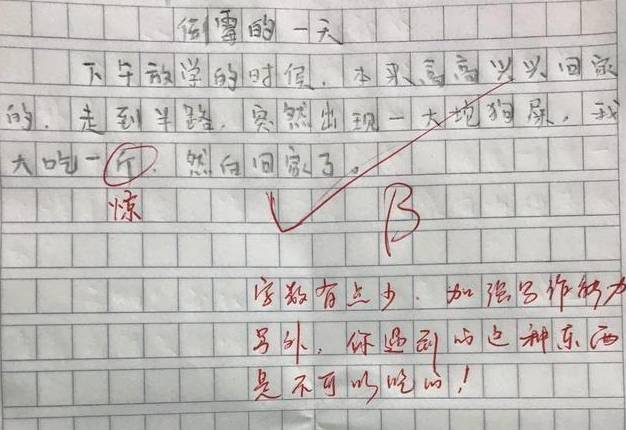 倒霉的一天
下午放学的时候,本来高高兴兴回家
的,走到半路,突然出现一大坨狗屎,我
大吃一斤,然后回家了。
惊
B
字数有点少,加强写作能力
另外,你遇到的这种东西
是不可以吃的!